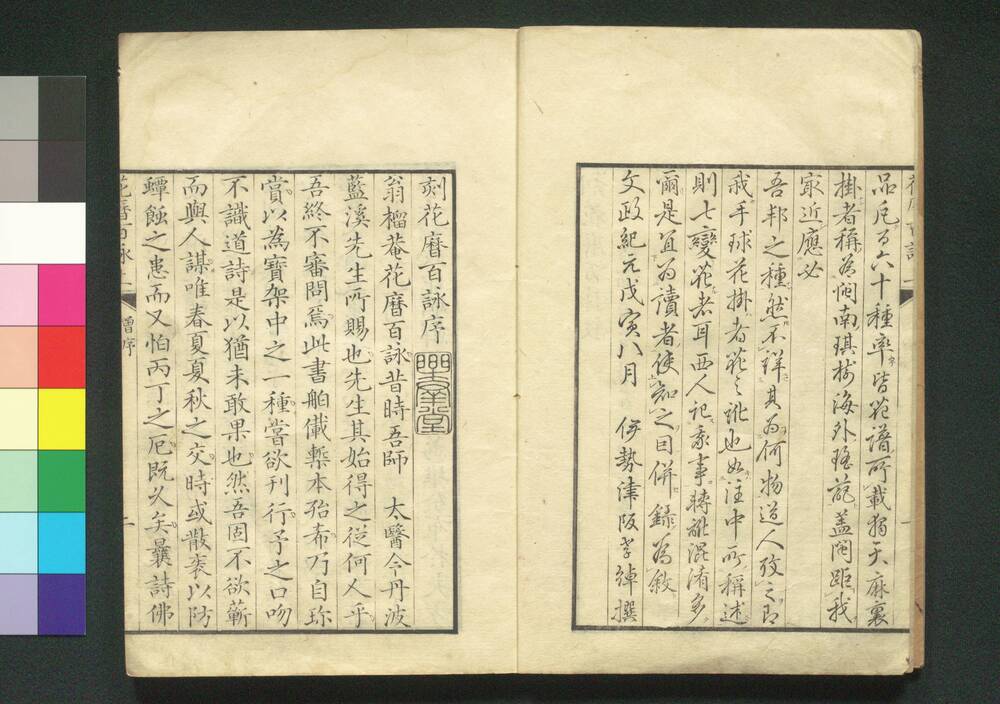 品凡百六十種率皆花譜所載獨天麻裏
掛者稱為閩南琪樹海外瑤葩蓋閩距我
㝡近應必
吾邦之種然不詳其為何物道人攷之即
我手球花掛者花之訛也如注中所稱述
則七變花者耳西人記象事轉訛混淆多
爾是宜為讀者使知之因併錄為敘
文政紀元戊寅八月　伊勢津阪孝綽撰
刻花曆百詠序
翁榴菴花曆百詠昔時吾師　太醫今丹波
藍溪先生所賜也先生其始得之從何人乎
吾終不審問焉此書舶儎槧本殆希乃自珍
賞以為寶架中之一種嘗欲刊行予之口吻
不識道詩是以猶未敢果也然吾固不欲蘄
而與人謀唯春夏夏秋之交時或散袠以防
蟫蝕之患而又怕丙丁之厄既久矣曩詩佛
花曆百詠
增序